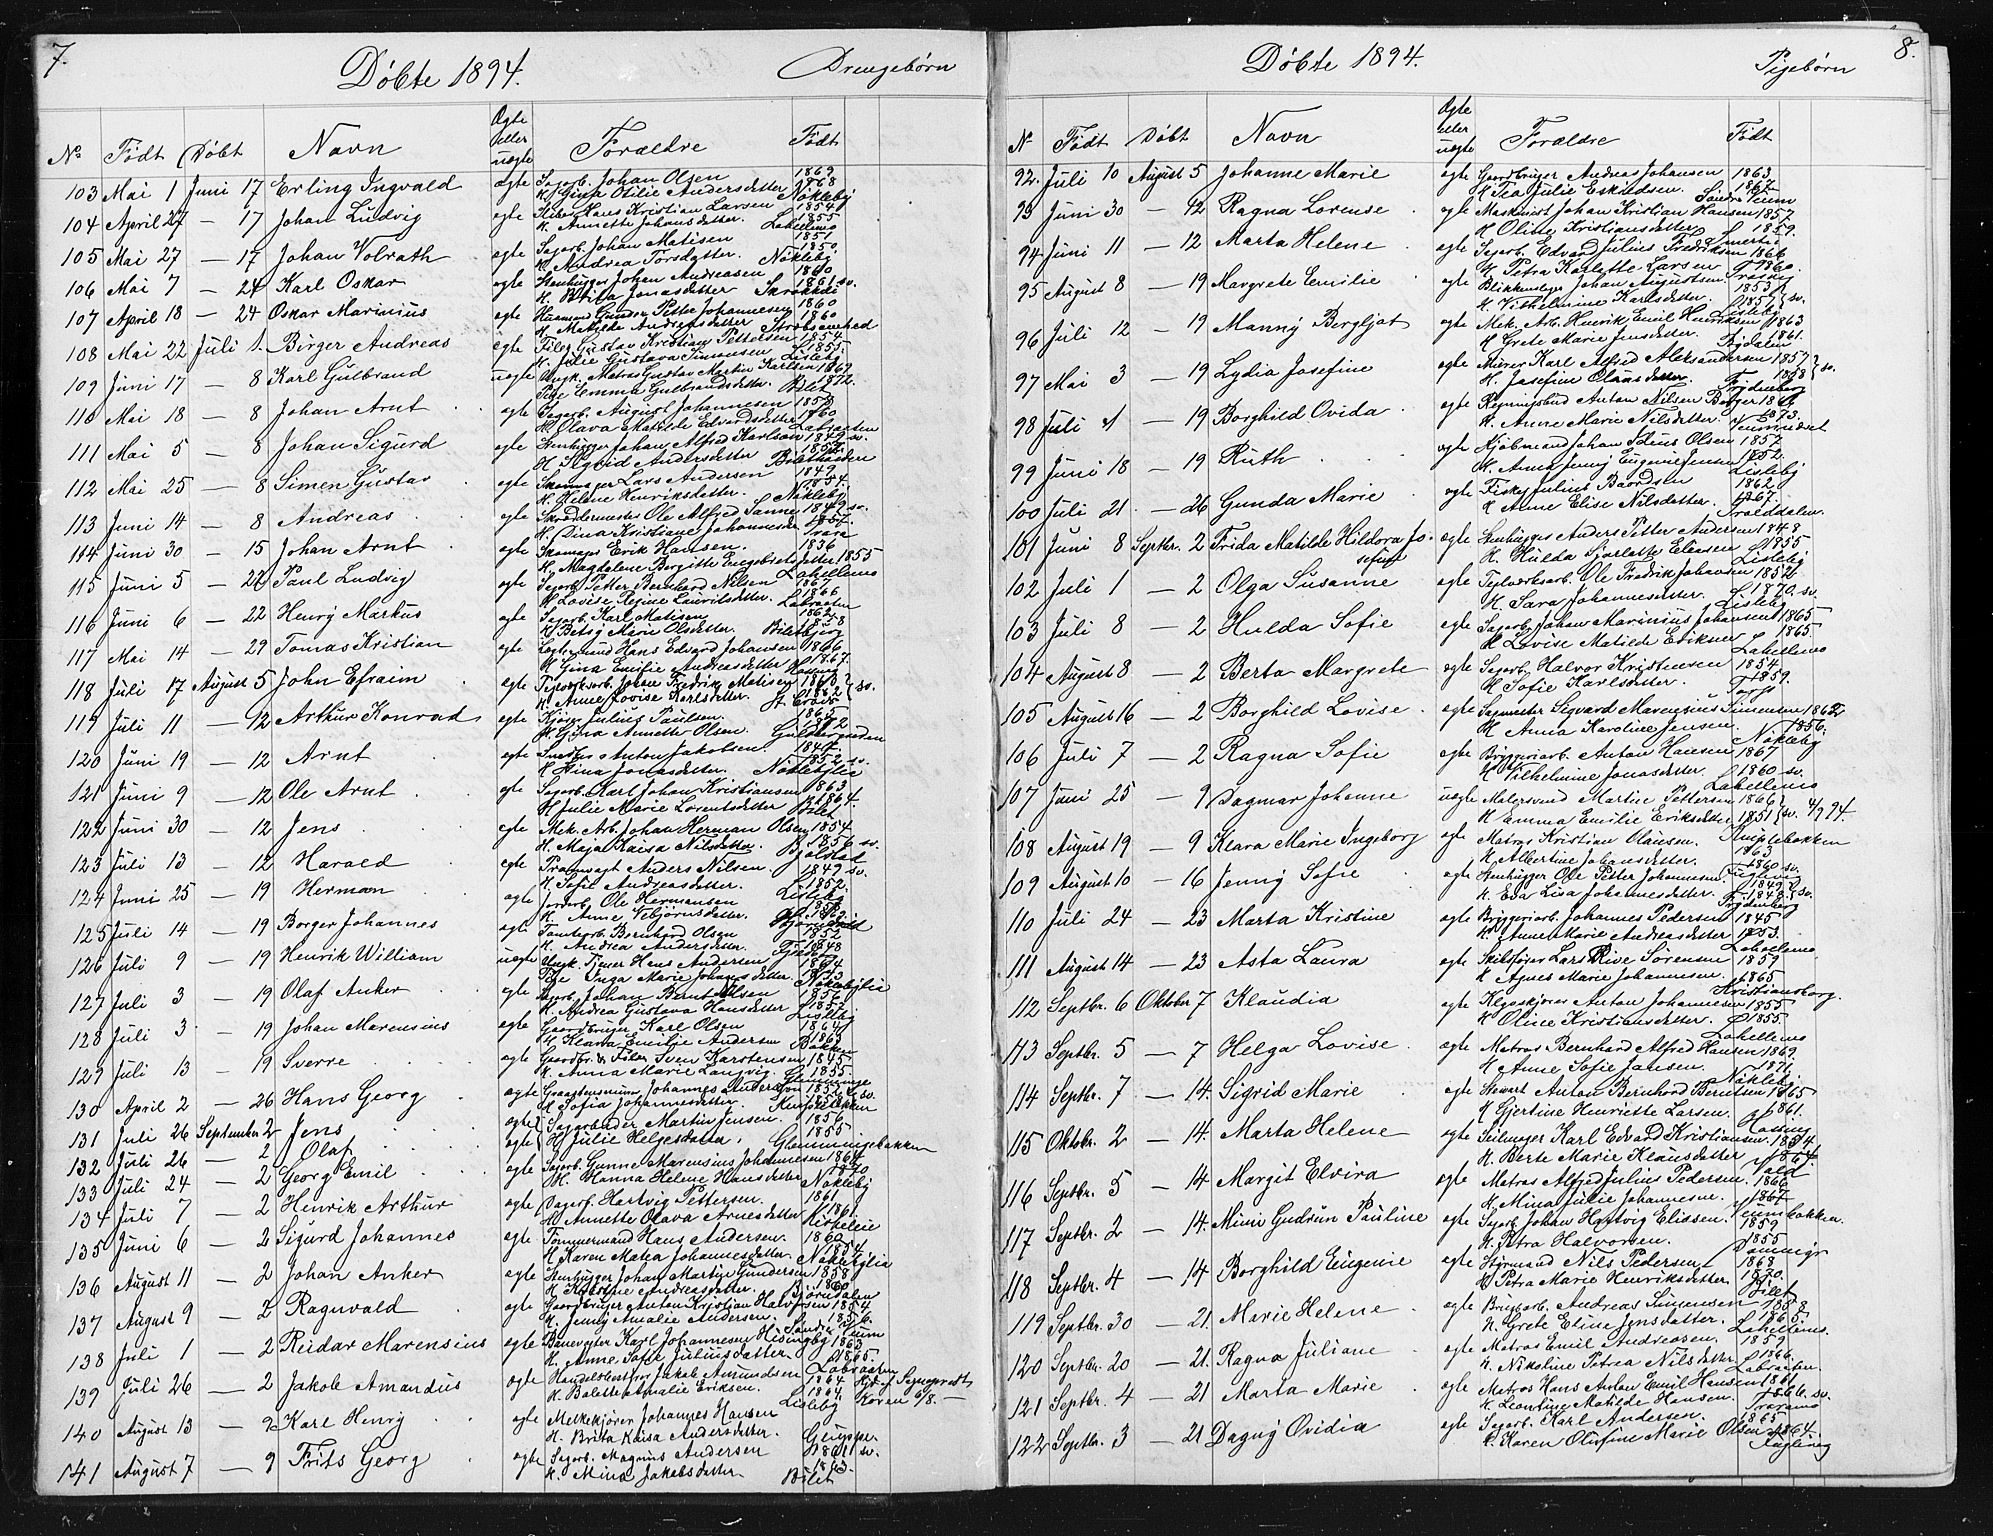 7.
Döbte 1894.
Drengebörn
No Födt Döbt Navn Ægte eller uægte Forældre Födt
103 Mai 1 Juni 17 Erling Ingvald ægte Sagarb. Johan Olsen 1869
H. Gina Otilie Andersdatter 1868 Nökleby
104 April 27 — 17 Johan Ludvig egte Hans Kristian Larsen 1854
H. Annette Johansdatter. 1855 Labellens
105 Mai 27 — 17 Johan Volrath egte Sagarb. Johan Matisen 1851
H. Andrea Torsdatter. 1850 Nökleby
106 Mai 7 — 24 Karl Oskar egte Stenhugger Johan Andreasen 1860
H. Brita Jonasdatter 1861 sv.
107 April 18 — 24 Oskar Marinius egte Gunder Petter Johannesen 1860
H. Matilde Andreasdatter 1860
108 Mai 22 Juli 1. Birger Andreas egte Filer Gustav Kristian Pettersen 1854
H. Julie Gustava Simensen 1855. Lisleby
109 Juni 17 — 8 Karl Gulbrand uægte Ungk. Matros Gustav Martin Karlsen 1869
Pige Emma Gulbrandsdatter. 1872.
110 Mai 18 — 8 Johan Arnt egte Sagarb. August Johannesen 1859
H. Olava Matilde Edvardsdatter 1860 Labraaten
111 Mai 5 — 8 Johan Sigurd egte Stenhugger Johan Alfred Karlson 1849 sv.
H. Sigrid Andersdatter 1852
112 Mai 25 — 8 Simen Gustav egte Skomager Lars Andersen 1849
H. Helene Henriksdatter. 1854. Nökleby
113 Juni 14 — 8 Andreas egte Skræddermester Ole Alfred Sanne 1847 sv.
H. Dina Kristiane Johannesdn 1857. Trara
114 Juni 30 — 15 Johan Arnt egte Skomager Erik Hansen. 1836
H. Magdalene Birgitte Engebretsdatter. 1855 Labellens
115 Juni 5 — 22 Paul Ludvig egte Sagarb. Petter Bernhard Nilsen
H. Lovise Regine Lauritsdatter. 1866 Labraaten
116 Juni 6 — 22 Henry Markus egte Sagarb. Karl Matisen 1862
H. Betsy Marie Olsdatter. 1858
117 Mai 14 — 29 Tomas Kristian egte Hans Edvard Johansen 1866
H. Gina Emilie Andreasdatter 1867.
118 Juli 17 August 5 John Efraim egte Teglværksarb. Johan Fredrik Matisen 1863
H. Anne Lovise Karlsdatter. 1862 sv.
119 Juli 11 — 12 Arthur Konrad egte Julius Paulsen. 1865
H. Gina Annette Olsen. 1872
120 Juni 19 — 12 Arnt egte Anton Jakobsen. 1847.
H. Stina Jonasdatter. 1852 sv. Nöklebylia
121 Juni 9 — 12 Ole Arnt egte Sagarb. Karl Johan Kristiansen 1863
H. Julie Marie Lorentsdatter 1864. Bilet
122 Juni 30 — 12 Jens egte Mek. Arb. Johan Herman Olsen 1854
H. Maja Kaisa Nilsdatter. 1856 sv.
123 Juli 13 — 12 Harald egte Anders Nilsen 1849 sv.
H. Sofie Andreasdatter. 1852.
124 Juni 25 — 19 Herman egte Jordarb. Ole Hermansen Lisleby
H. Anne Vebjörnsdatter.
125 Juli 14 — 19 Borger Johannes egte Tomtearb. Bernhard Olsen 1852
H. Andrea Andersdatter. 1848
126 Juli 9 — 19 Henrik William uægte Ungk. Tjener Hans Andersen
Pige Inga Marie Johansdatter. 1873 Nöklebylia
127 Juli 3 — 19 Olaf Anker egte Sagarb. Johan Berntsen 1856
H. Andrea Gustava Hansdatter 1857 Lisleby
128 Juli 3 — 19 Johan Marensius egte Gaardbruger Karl Olsen 1864
H. Klara Emilie Andersen 1863
129 Juli 13 — 19 Sverre egte Gaardbr. & Filer Sven Karstensen 1845
H. Anna Marie Langvig. 1855.
130 April 2 — 26 Hans Georg egte Johannes Andersen 1852 sv.
H. Sofia Johannesdatter. 1856 Knipsebakken
131 Juli 26 September 2 Jens egte Sagarbeider Martin Jensen. 1856
132 Juli 26 — 2 Olaf egte H. Julie Helgesdatter. 1855 Glemmingebakken
133 Juli 24 — 2 Georg Emil egte Sagarb. Gunne Marensius Johannesen 1864
H. Hanna Helene Hansdatter 1870 Nökleby
134 Juli 7 — 2 Henrik Arthur egte Dagarb. Hartvig Pettersen. 1861
H. Annette Olava Arnesdatter 1861
135 Juni 6 — 2 Sigurd Johannes egte Tömmermand Hans Andersen. 1860
H. Karen Matea Johannesdatter 1854 Nöklebylia
136 August 11 — 2 Johan Anker egte Stenhugger Johan Martin Gundersen 1858
H. Andreasdatter. 1860 Björndalen
137 August 9 — 2 Ragnvald egte Gaardbruger Anton Kristian Halvorsen 1854
H. Jenny Amalie Andersen. 1856.
138 Juli 1 — 2 Reidar Marensius egte Banevogter Karl Johannesen Hisingby 1863
H. Anne Sofie Juliusdatter. 1865.
139 Juli 26 — 2 Jakob Amandus egte Handelsbestyrer Jakob Amundsen 1864 Labraaten
H. Bolette Amalie Eriksen. 1864. Lisleby
140 August 13 — 2 Karl Henry egte Melkekjører Johannes Hansen
H. Brita Kaisa Andersdatter.
141 August 7 — 9 Frits Georg egte Sagarb. Magnus Andersen 1861 sv.
H. Mina Jakobsdatter. 1863. Bilet
8.
Döbte 1894.
Pigebörn
No Födt Döbt Navn Ægte eller uægte Forældre Födt
92. Juli 10 August 5 Johanne Marie egte Gaardbruger Andreas Johansen 1863
H. Tea Julie Eskildsen. 1862 Söndre Veum
93 Juni 30 — 12 Ragna Lorense egte Maskinist Johan Kristian Hansen 1857
H. Olitte Kristiansdatter 1859.
94 Juni 11 — 12 Marta Helene egte Sagarb. Edvard Julius Fredriksen 1866
H. Petra Karlette Larsen 1860
95 August 8 — 19 Margrete Emilie egte Blikkenslager Johan Augustsen. 1853
H. Vilhelmine Karlsdatter. 1857 sv. Lisleby
96 Juli 12 — 19 Manny Bergljot egte Mek. Arb. Henrik Emil Henriksen 1863
H. Grete Marie Jensdatter. 1861.
97 Mai 3 — 19 Lydia Josefine egte Murer Karl Alfred Aleksandersen 1857
H. Josefine Olausdatter. 1858 sv. Frydenberg
98 Juli 1 — 19 Borghild Ovida egte Regningsbud Anton Nilsen Borger
H. Anne Marie Nilsdatter. 1873.
99 Juni 18 — 19 Ruth egte Hjølmand Johan Julius Olsen 1857
H. Anna Jenny Eugenie Jensen 1862. Lisleby
100 Juli 21. — 26 Gunda Marie egte Fisker Julius Baardsen 1862
H. Anne Elise Nilsdatter. 1867. Traaldalen.
101 Juni 8 Septbr. 2 Frida Matilde Hildora Josefine egte Stenhugger Anders Petter Andersen 1848
H. Hulda Sjarlotte Eliasen 1855 Lisleby
102 Juli 1 — 2 Olga Susanne egte Teglværksarb. Ole Fredrik Johansen 1852
H. Sara Johannesdatter. 1870. sv. Lisleby
103 Juli 8 — 2 Hulda Sofie egte Sagarb. Johan Marinius Johansen 1865
H. Lovise Matilde Eriksen 1865. Labellens
104 August 8 — 2 Berta Margrete egte Sagarb. Halvor Kristensen 1854
H. Sofie Karlsdatter. 1859. Torp
105 August 16 — 2 Borghild Lovise. egte Sagmester Sigvard Marensius Simensen 1862
H. Anna Karoline Jensen 1856. Nökleby
106 Juli 7 — 2 Ragna Sofie egte Bryggeriarb. Anton Hansen 1867
H. Vilhelmine Jonasdatter. 1860 sv. Labellens
107 Juni 25 — 9 Dagmar Johanne uægte Malersvend Martin Pettersen 1866
H. Amma Emilie Eriksdatter 1851 sv. 4/9 94.
108 August 19 — 9 Klara Marie Ingeborg egte Matros Kristian Olausen. Knipsebakken 1863
H. Albertine Johansdatter. 1860 sv.
109 August 10 — 16 Jenny Sofie egte Stenhugger Ole Petter Johannesen. 1849
H. Eva Lisa Johannesdatter. 1848 sv. Frydenberg
110 Juli 24 — 23 Marta Kristine egte Bryggeriarb. Johannes Pedersen 1845
H. Anne Marie Andreasdatter 1853. Labellens
111 August 14 — 23 Asta Laura egte Skibsfører Lars Rive Sörensen 1859
H. Agnes Marie Johannesen. 1865 Kristiansborg.
112 Septbr. 6 Oktober 7 Klaudia egte Anton Johannesen 1855
H. Oline Kristiansdatter. 1855. Labellens
113 Septbr. 5 — 7 Helga Lovise. egte Matros Bernhard Alfred Hansen 1869.
H. Anne Sofie Jansen. 1871 Nökleby
114 Septbr. 7 — 14. Sigrid Marie egte Stewart Anton Bernhard Berntsen 1865
H. Gjertine Henriette Larsen. 1861.
115 Oktobr. 2 — 14. Marta Helene egte Seilmager Karl Edvard Kristiansen. 1854.
H. Berte Marie Klausdatter 1864.
116 Septbr. 5 — 14 Margit Elvira egte Matros Alfred Julius Pedersen. 1866
H. Mina Julie Johannesen. 1867 Veumbakken
117 Septbr. 2 — 14. Mimi Gudrun Pauline egte Sagarb. Johan Hartvig Eliasen. 1859
H. Petra Halvorsen. 1855
118 Septbr. 4 — 14 Borghild Eugenie egte Styrmand Nils Pedersen 1868
H. Petra Marie Henriksdatter 1870. Bilet
119 Septbr. 30 — 21. Marie Helene egte Brugsarb. Andreas Simensen 1858
H. Grete Eline Jensdatter. 1865. Labellens.
120 Septbr. 20 — 21. Ragna Juliane egte Matros Emil Andreasen. 1859
H. Nikoline Petrea Nilsdatter 1866. Labraaten.
121 Septbr. 4 — 21 Marta Marie egte Matros Hans Anton Emil Hansen 1861
H. Leontine Matilde Hansen. 1866. sv.
122 Septbr. 3 — 21 Dagny Ovidia egte Sagarb. Karl Andersen. 1865
H. Karen Olufine Marie Olsen 1864.